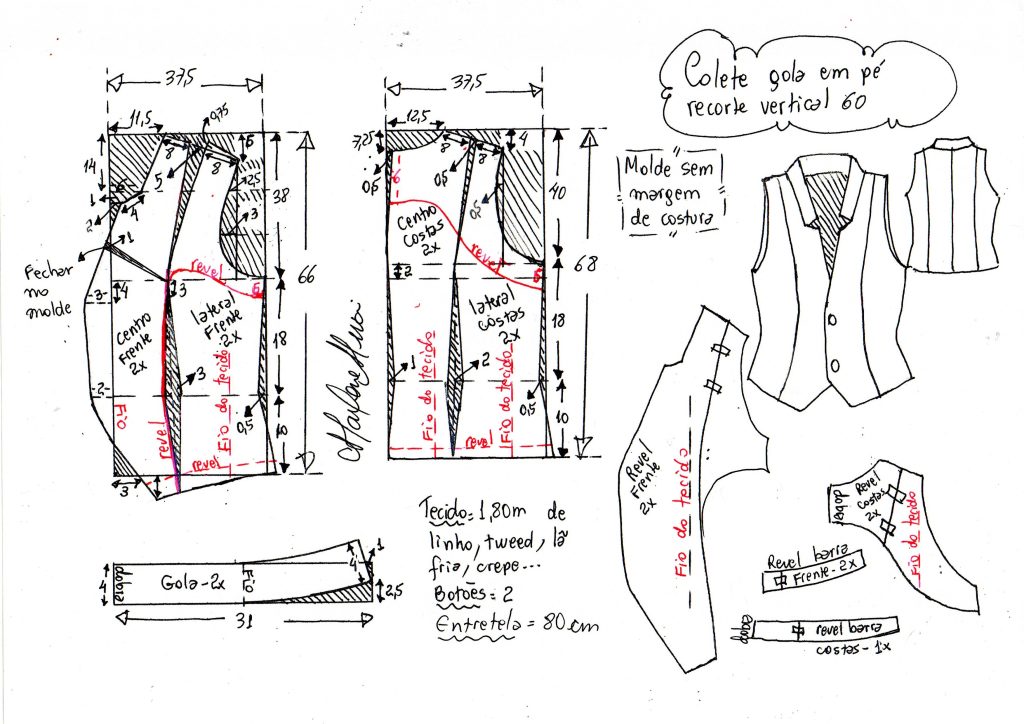 Colete gola em pé
recorte vertical 60
Molde sem
margem
de costura
37,5
11,5
0,75
14
8
8
6
5
25
38
3
6
1
4
2
1
Fechar
no
molde
3
4
3
revel
6
66
Centro
Frente
2x
lateral
Frente
2x
18
2
3
Fio
revel
Fio do tecido
0,5
10
revel
3
37,5
12,5
7,25
8
8
4
0,5
0,5
0,5
6
40
Centro
Costas
2x
revel
2
6
68
lateral
Costas
2x
18
1
2
Fio do tecido
Fio do tecido
0,5
10
revel
4
dobra
Gola-2x
Fio
4
1
2,5
31
Tecido=1,80m de
linho, tweed, lã
fria, crepe...
Botões=2
Entretela = 80 cm
Revel
Frente
2x
Fio do tecido
dobra
Revel
Costas
2x
Fio do tecido
Revel barra
Frente-2x
dobra
revel barra
costas-1x